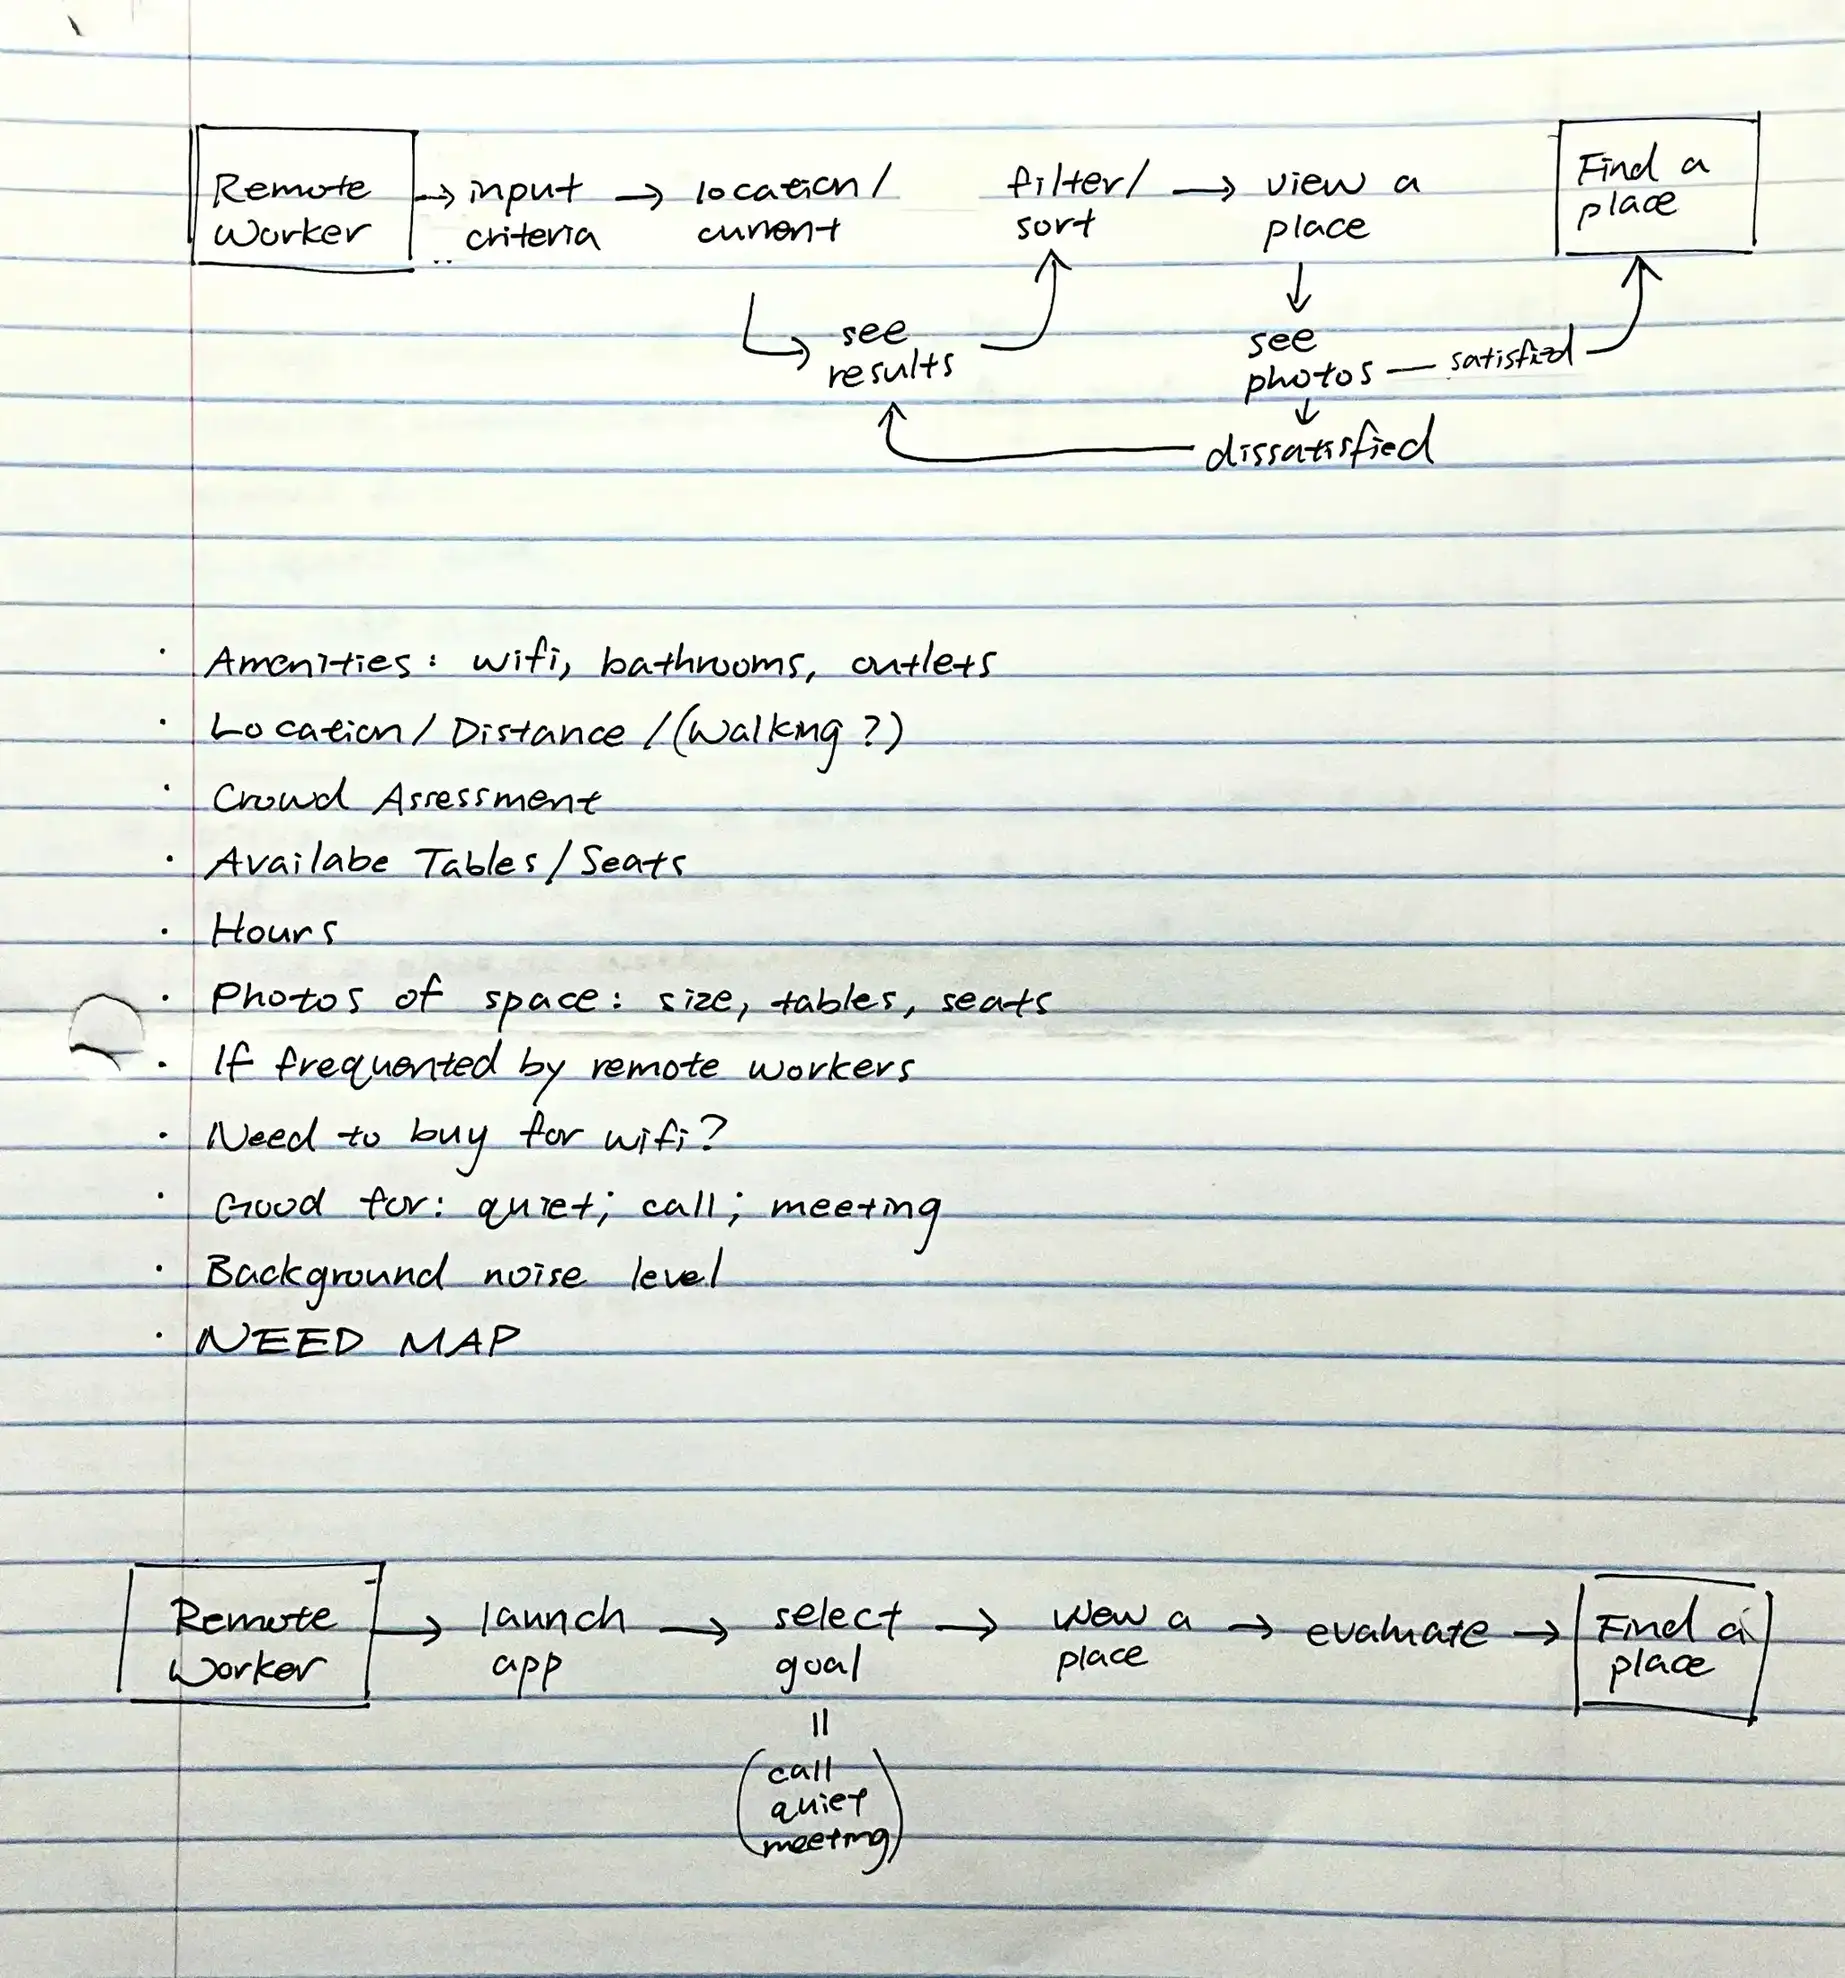 Remote Worker → input criteria → location/ current
filter/ sort → view a place
Find a place
see results
see photos — satisfied
dissatisfied
· Amenities: wifi, bathrooms, outlets
· Location / Distance / (Walking?)
· Crowd Assessment
· Availabe Tables / Seats
· Hours
· Photos of space: size, tables, seats
· If frequented by remote workers
· Need to buy for wifi?
· Good for: quiet; call; meeting
· Background noise level
· NEED MAP
Remote Worker → launch app → select goal → view a place → evaluate → Find a place
call
quiet
meeting